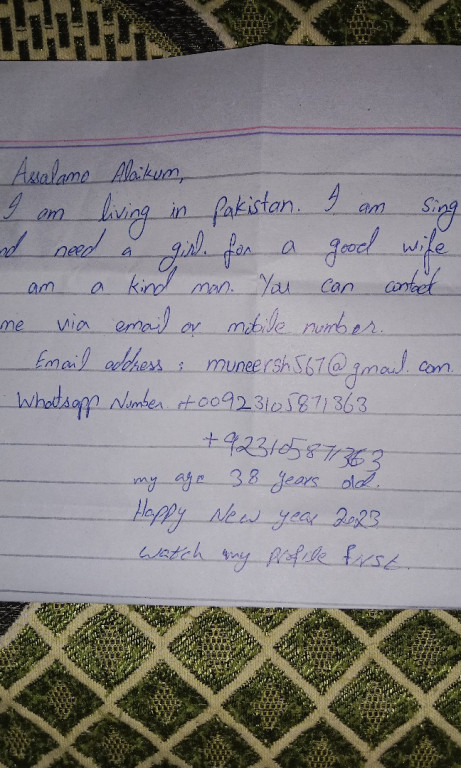 Assalamo Alaikum,
I am living in Pakistan. I am sing
nd need a girl. for a good wife
am a kind man. You can contact
me via email or mobile number.
Email address : muneersh567@gmail.com
Whatsapp Number +00923105871363
+923105871363
my age 38 years old.
Happy New year 2023
watch my profile first.